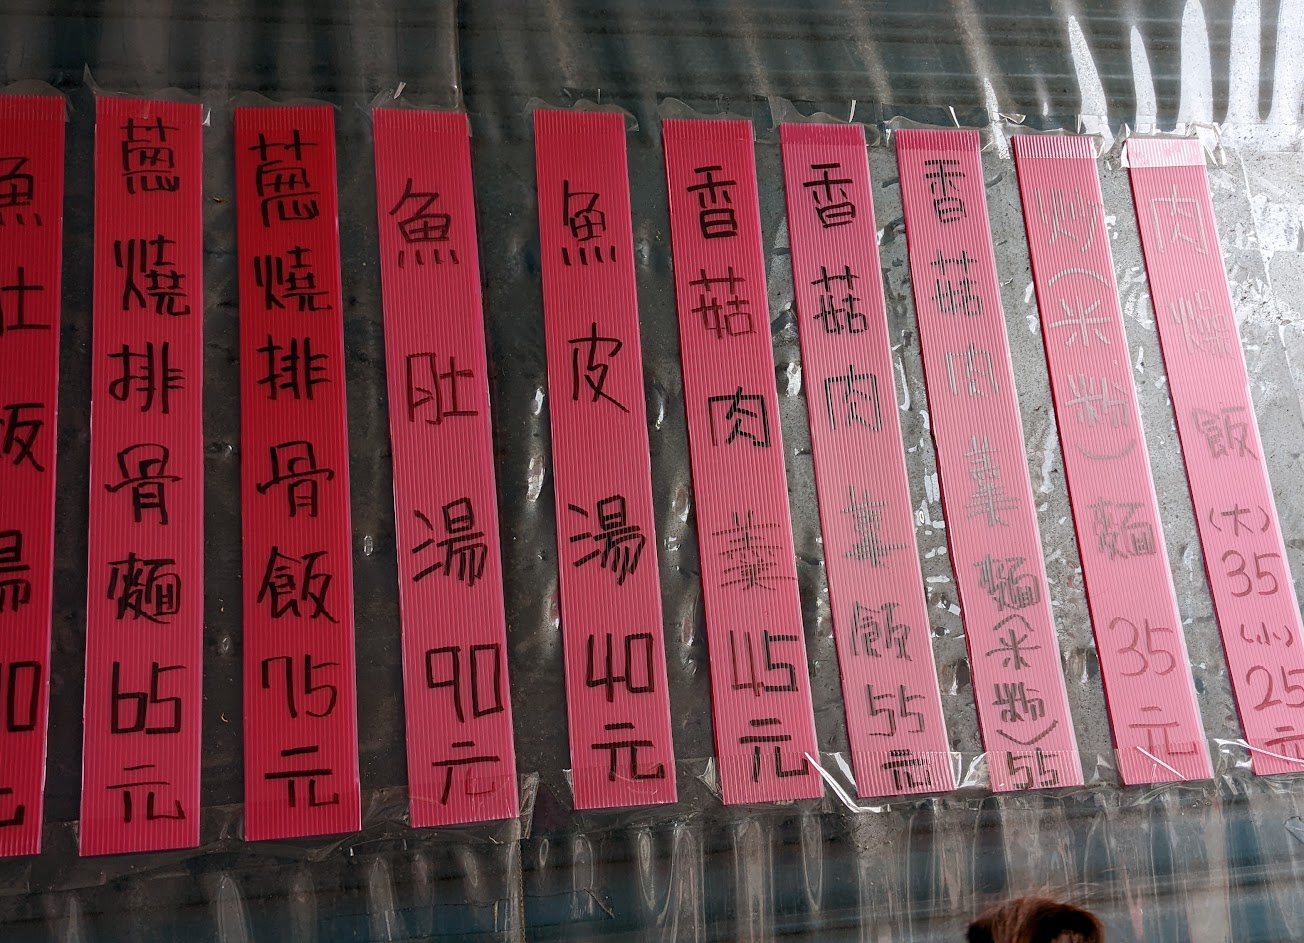 肉燥飯(大)35(小)25元
炒(米粉)麵35元
香菇肉羹麵(米粉)55
香菇肉羹飯55元
香菇肉羹45元
魚皮湯40元
魚肚湯90元
蔥燒排骨飯75元
蔥燒排骨麵65元
魚肚飯湯